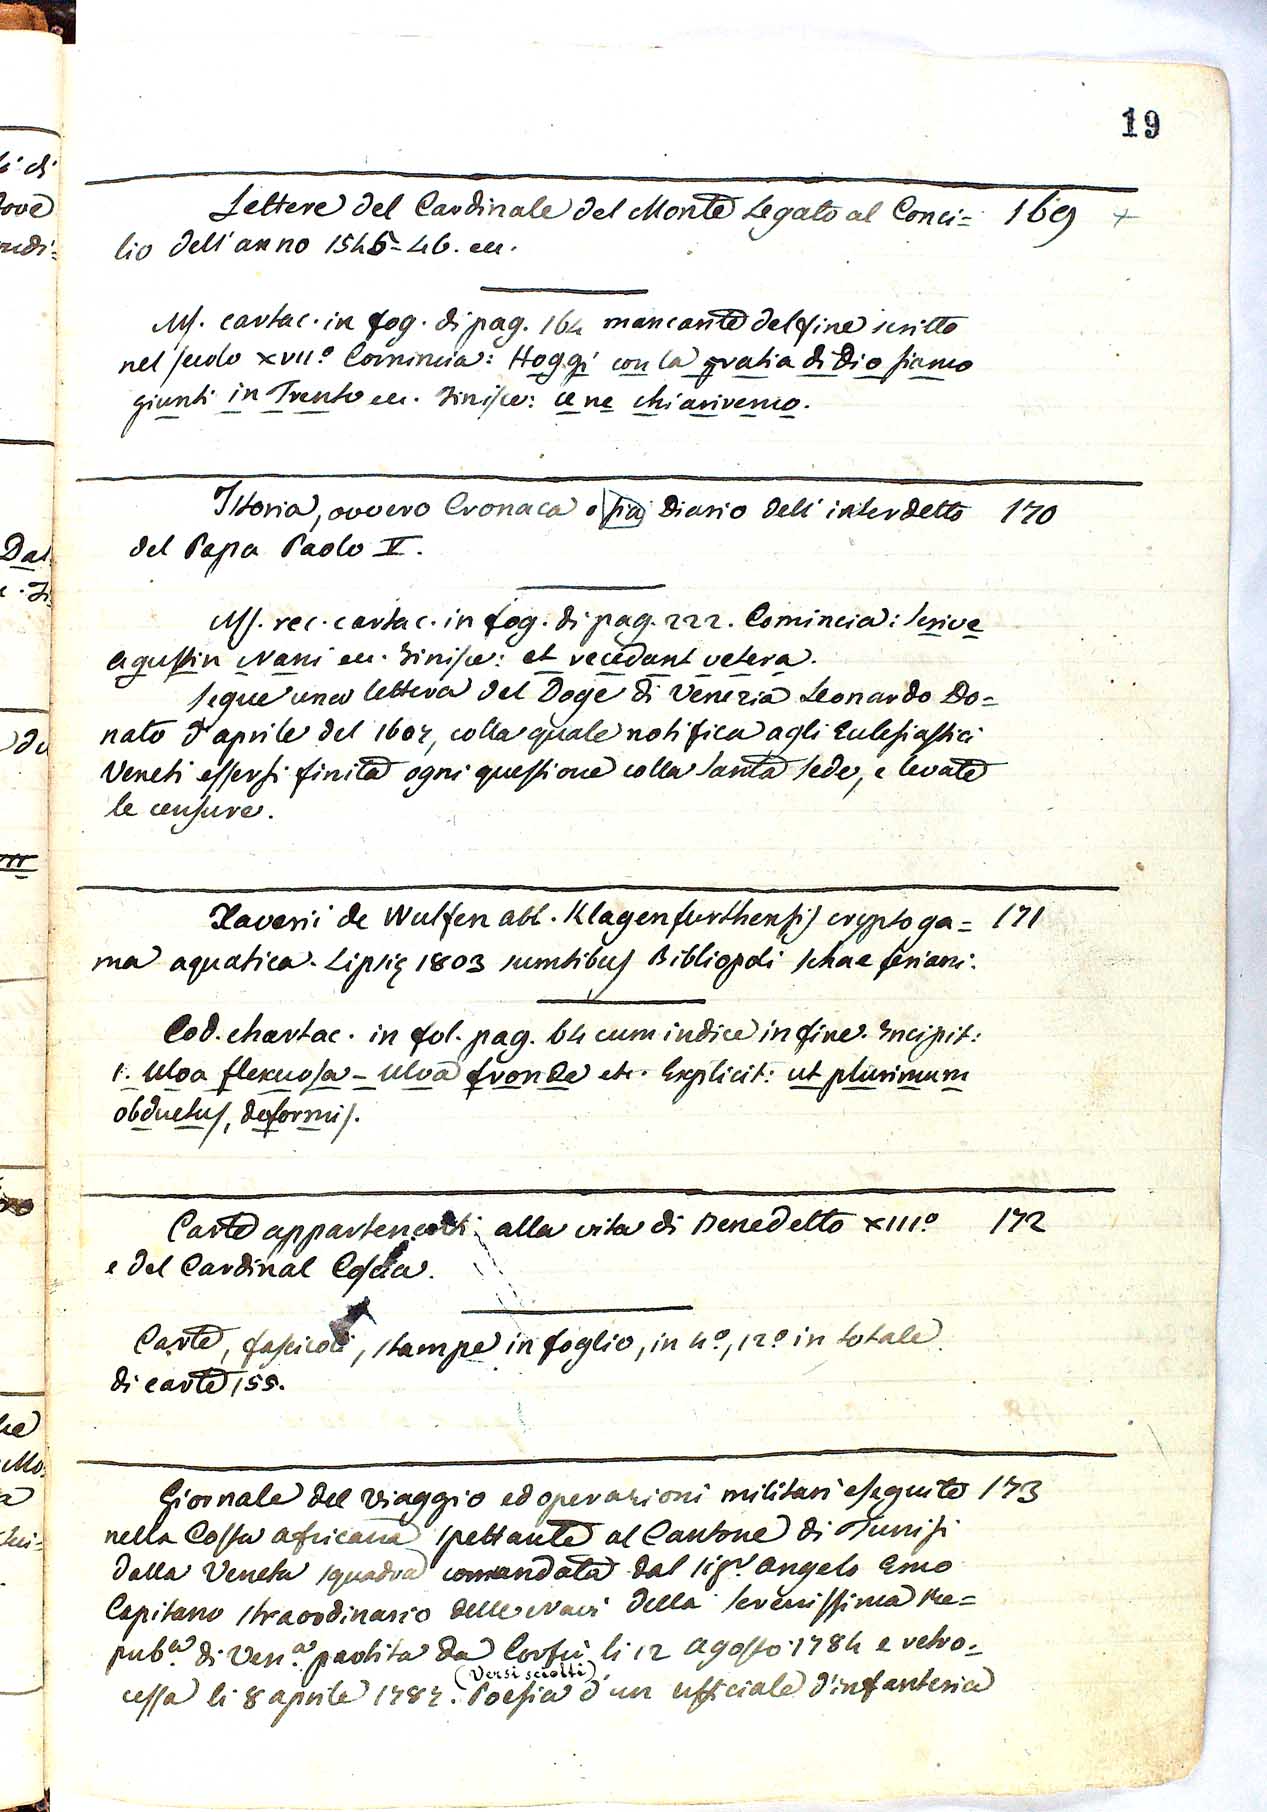 19
Lettere del Cardinale del Monte Legato al Conci= 169 +
lio dell'anno 1545-46. ecc.
Ms. cartac. in fog. di pag. 164 mancante del fine scritto
nel secolo XVII.º Comincia: Hoggi con la gratia di Dio siamo
giunti in Trento ecc. Finisce: ce ne chiariremo.
Istoria, ovvero Cronaca o sia Diario dell'interdetto 170
del Papa Paolo V.
Ms. rec. cartac. in fog. di pag. 222. Comincia: Scrive
Agustin Nani ecc. Finisce: et recedant vetera.
Segue una lettera del Doge di Venezia Leonardo Do=
nato d'aprile del 1607, colla quale notifica agli Eclesiastici
Veneti essersi finita ogni questione colla Santa Sede, e levate
le censure.
Xaverii de Wulfen abb. Klagenfurthensis cryptoga= 171
ma aquatica. Lipsię 1803 sumtibus Bibliopoli Schaeferiani.
Cod. chartac. in fol. pag. 64 cum indice in fine. Incipit:
1. Ulva flexuosa - Ulva fronde etc. Explicit: ut plurimum
obductus, deformis.
Carte appartenenti alla vita di Benedetto XIII.º 172
e del Cardinal Coscia.
Carte, fascicoli, stampe in foglio, in 4.º, 12.º in totale
di carte 155.
Giornale del viaggio ed operazioni militari eseguite 173
nella Costa africana spettante al Cantone di Tunisi
dalla Veneta squadra comandata dal Sigr. Angelo Emo
Capitano straordinario delle Navi della Serenissima Re=
pub.a di Ven.a partita da Corfù li 12 Agosto 1784 e retro=
(Versi sciolti)
cessa li 8 aprile 1787. Poesia d'un ufficiale d'infanteria